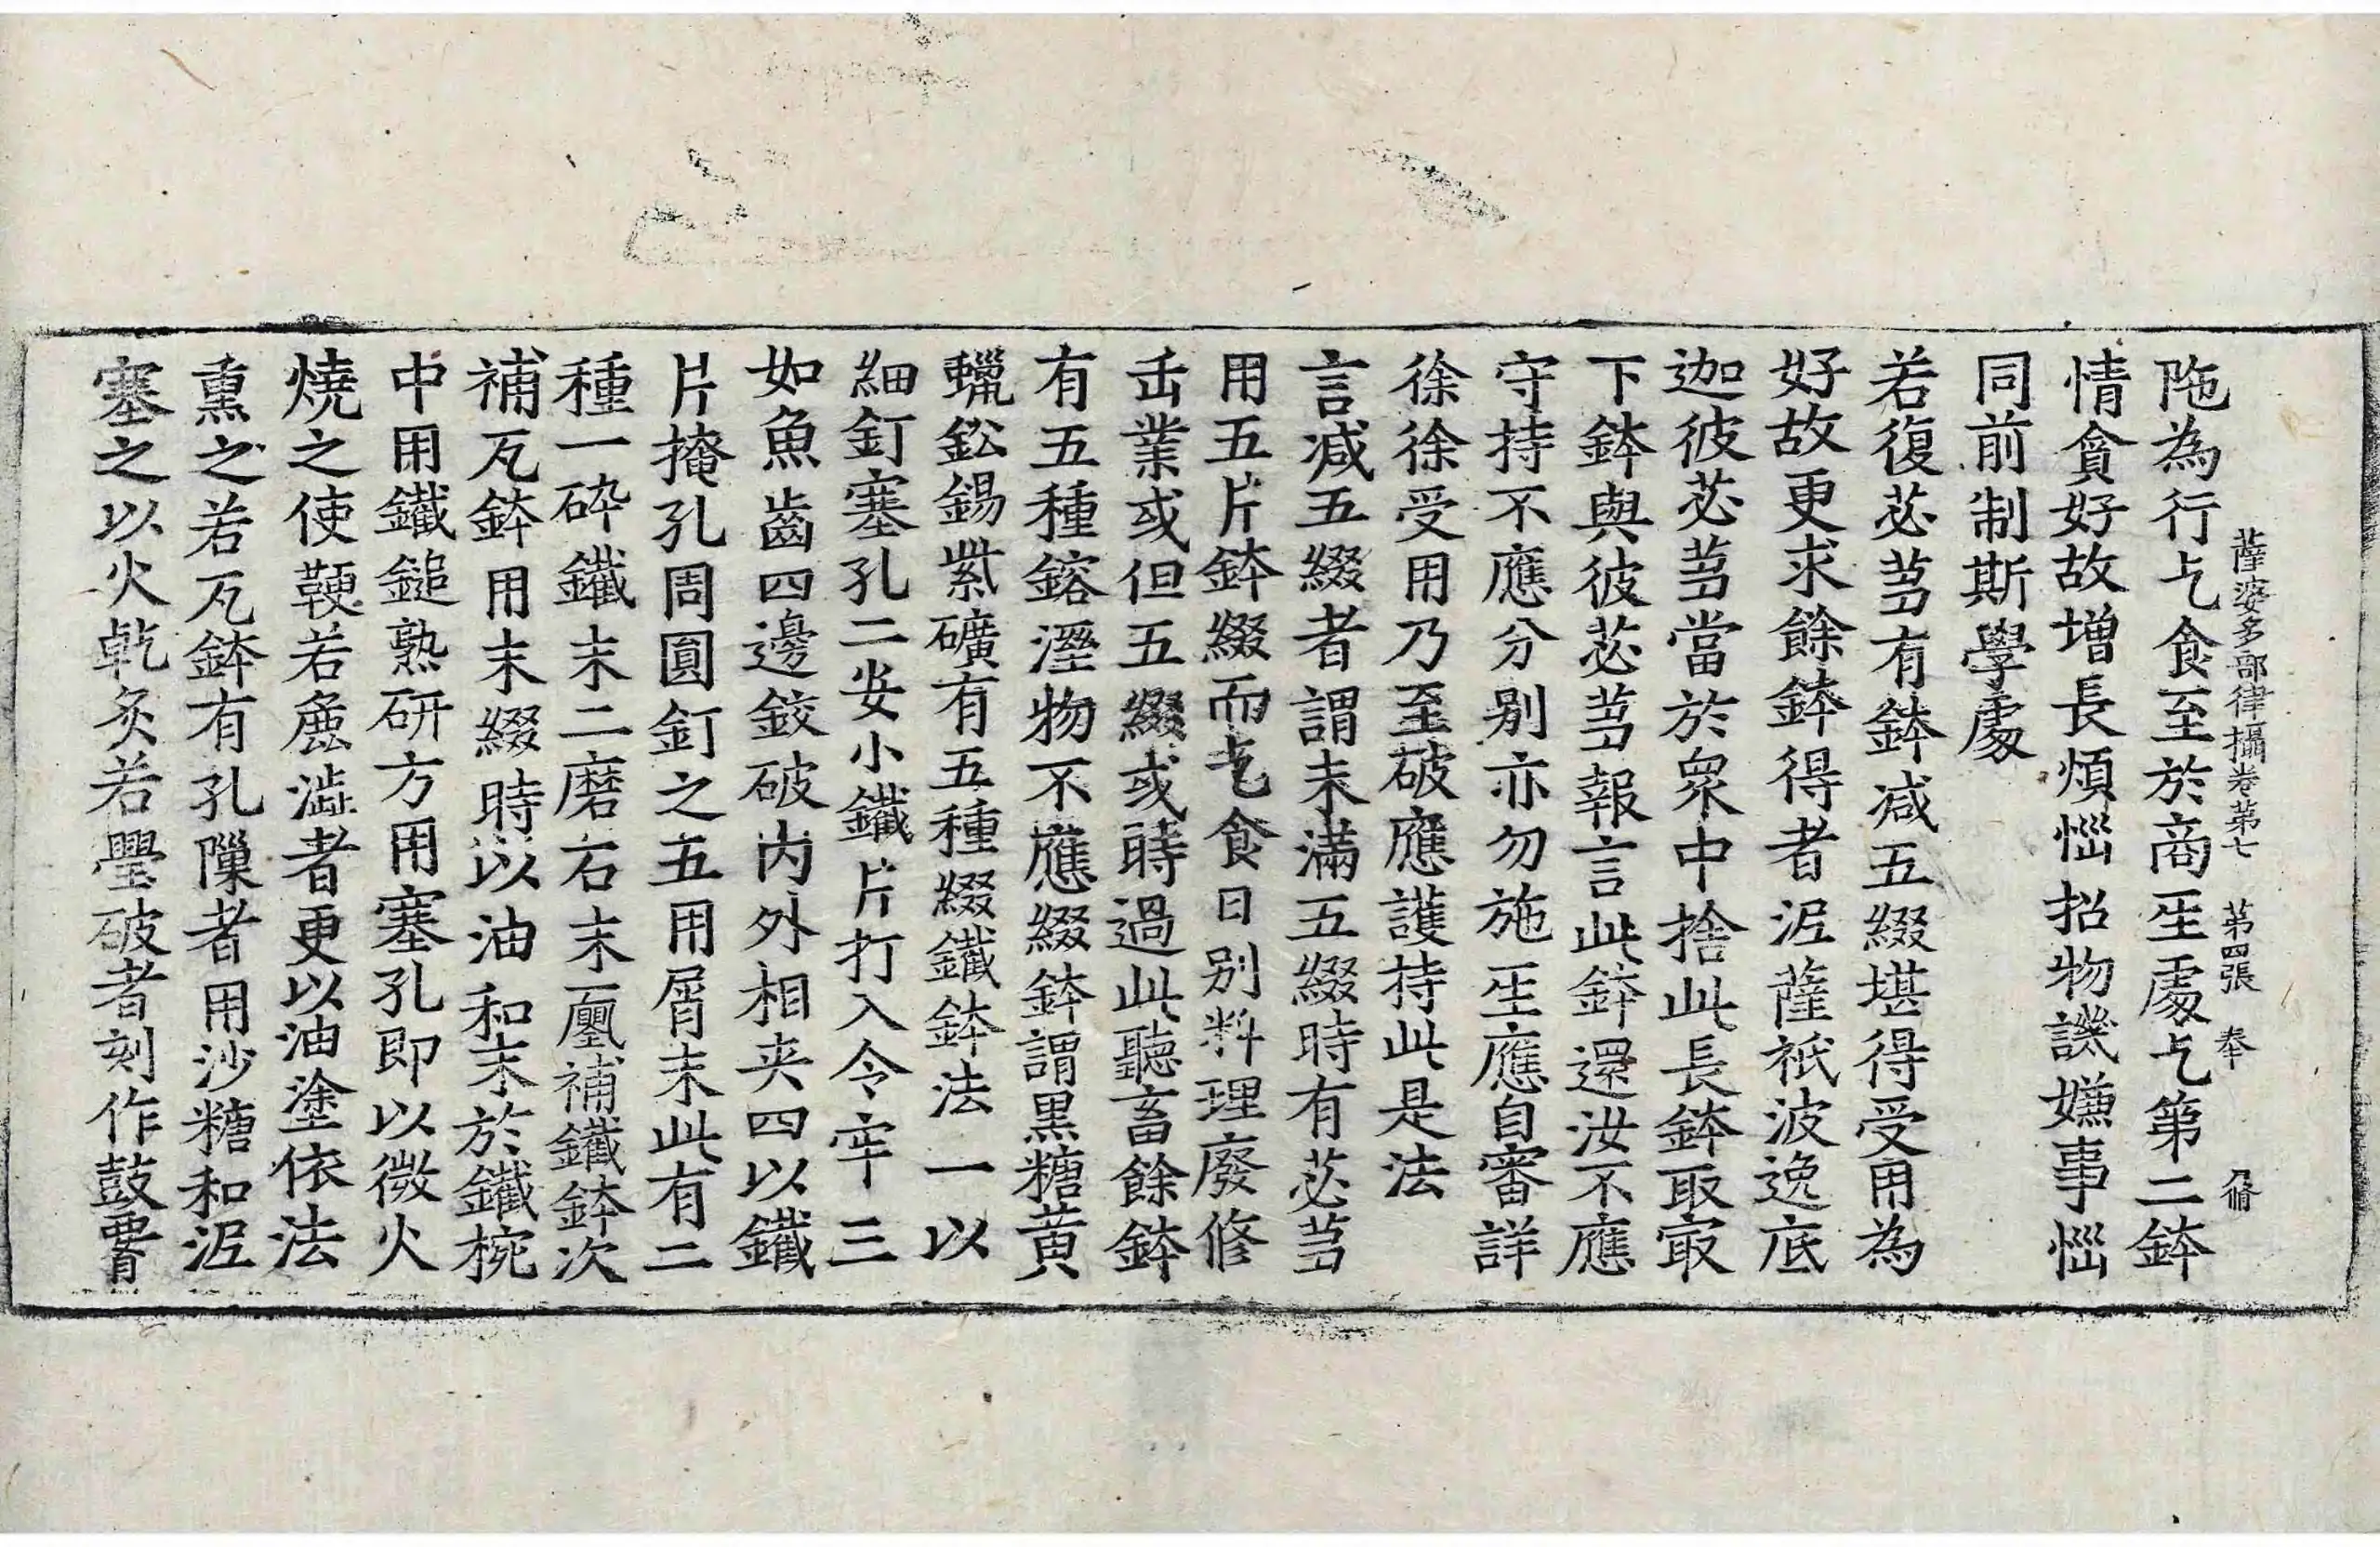 薩婆多部律攝卷第七 第四張 奉
陁為行乞食至於商𤯔處乞第二鉢
情貪好故增長煩惱招物譏嫌事惱
同前制斯學處
若復苾芻有鉢减五綴堪得受用為
好故更求餘鉢得者泥薩祇波逸底
迦彼苾芻當於衆中捨此長鉢取㝡
下鉢與彼苾芻報言此鉢還汝不應
守持不應分别亦勿施𤯔應自審詳
徐徐受用乃至破應護持此是法
言减五綴者謂未滿五綴時有苾芻
用五片鉢綴而乞食日别料理廢修
缶業或但五綴或時過此聽畜餘鉢
有五種鎔溼物不應綴鉢謂黑糖黄
蠟鈆錫紫礦有五種綴鐵鉢法一以
細釘塞孔二安小鐵片打入令牢三
如魚齒四邊鉸破内外相夾四以鐵
片掩孔周圓釘之五用屑末此有二
種一碎鐵末二磨石末㼽補鐵鉢次
補瓦鉢用末綴時以油和末於鐵椀
中用鐵鎚熟研方用塞孔即以微火
燒之使鞕若麁澁者更以油塗依法
熏之若瓦鉢有孔隟者用沙糖和泥
塞之以火乾炙若璺破者刻作鼓腰